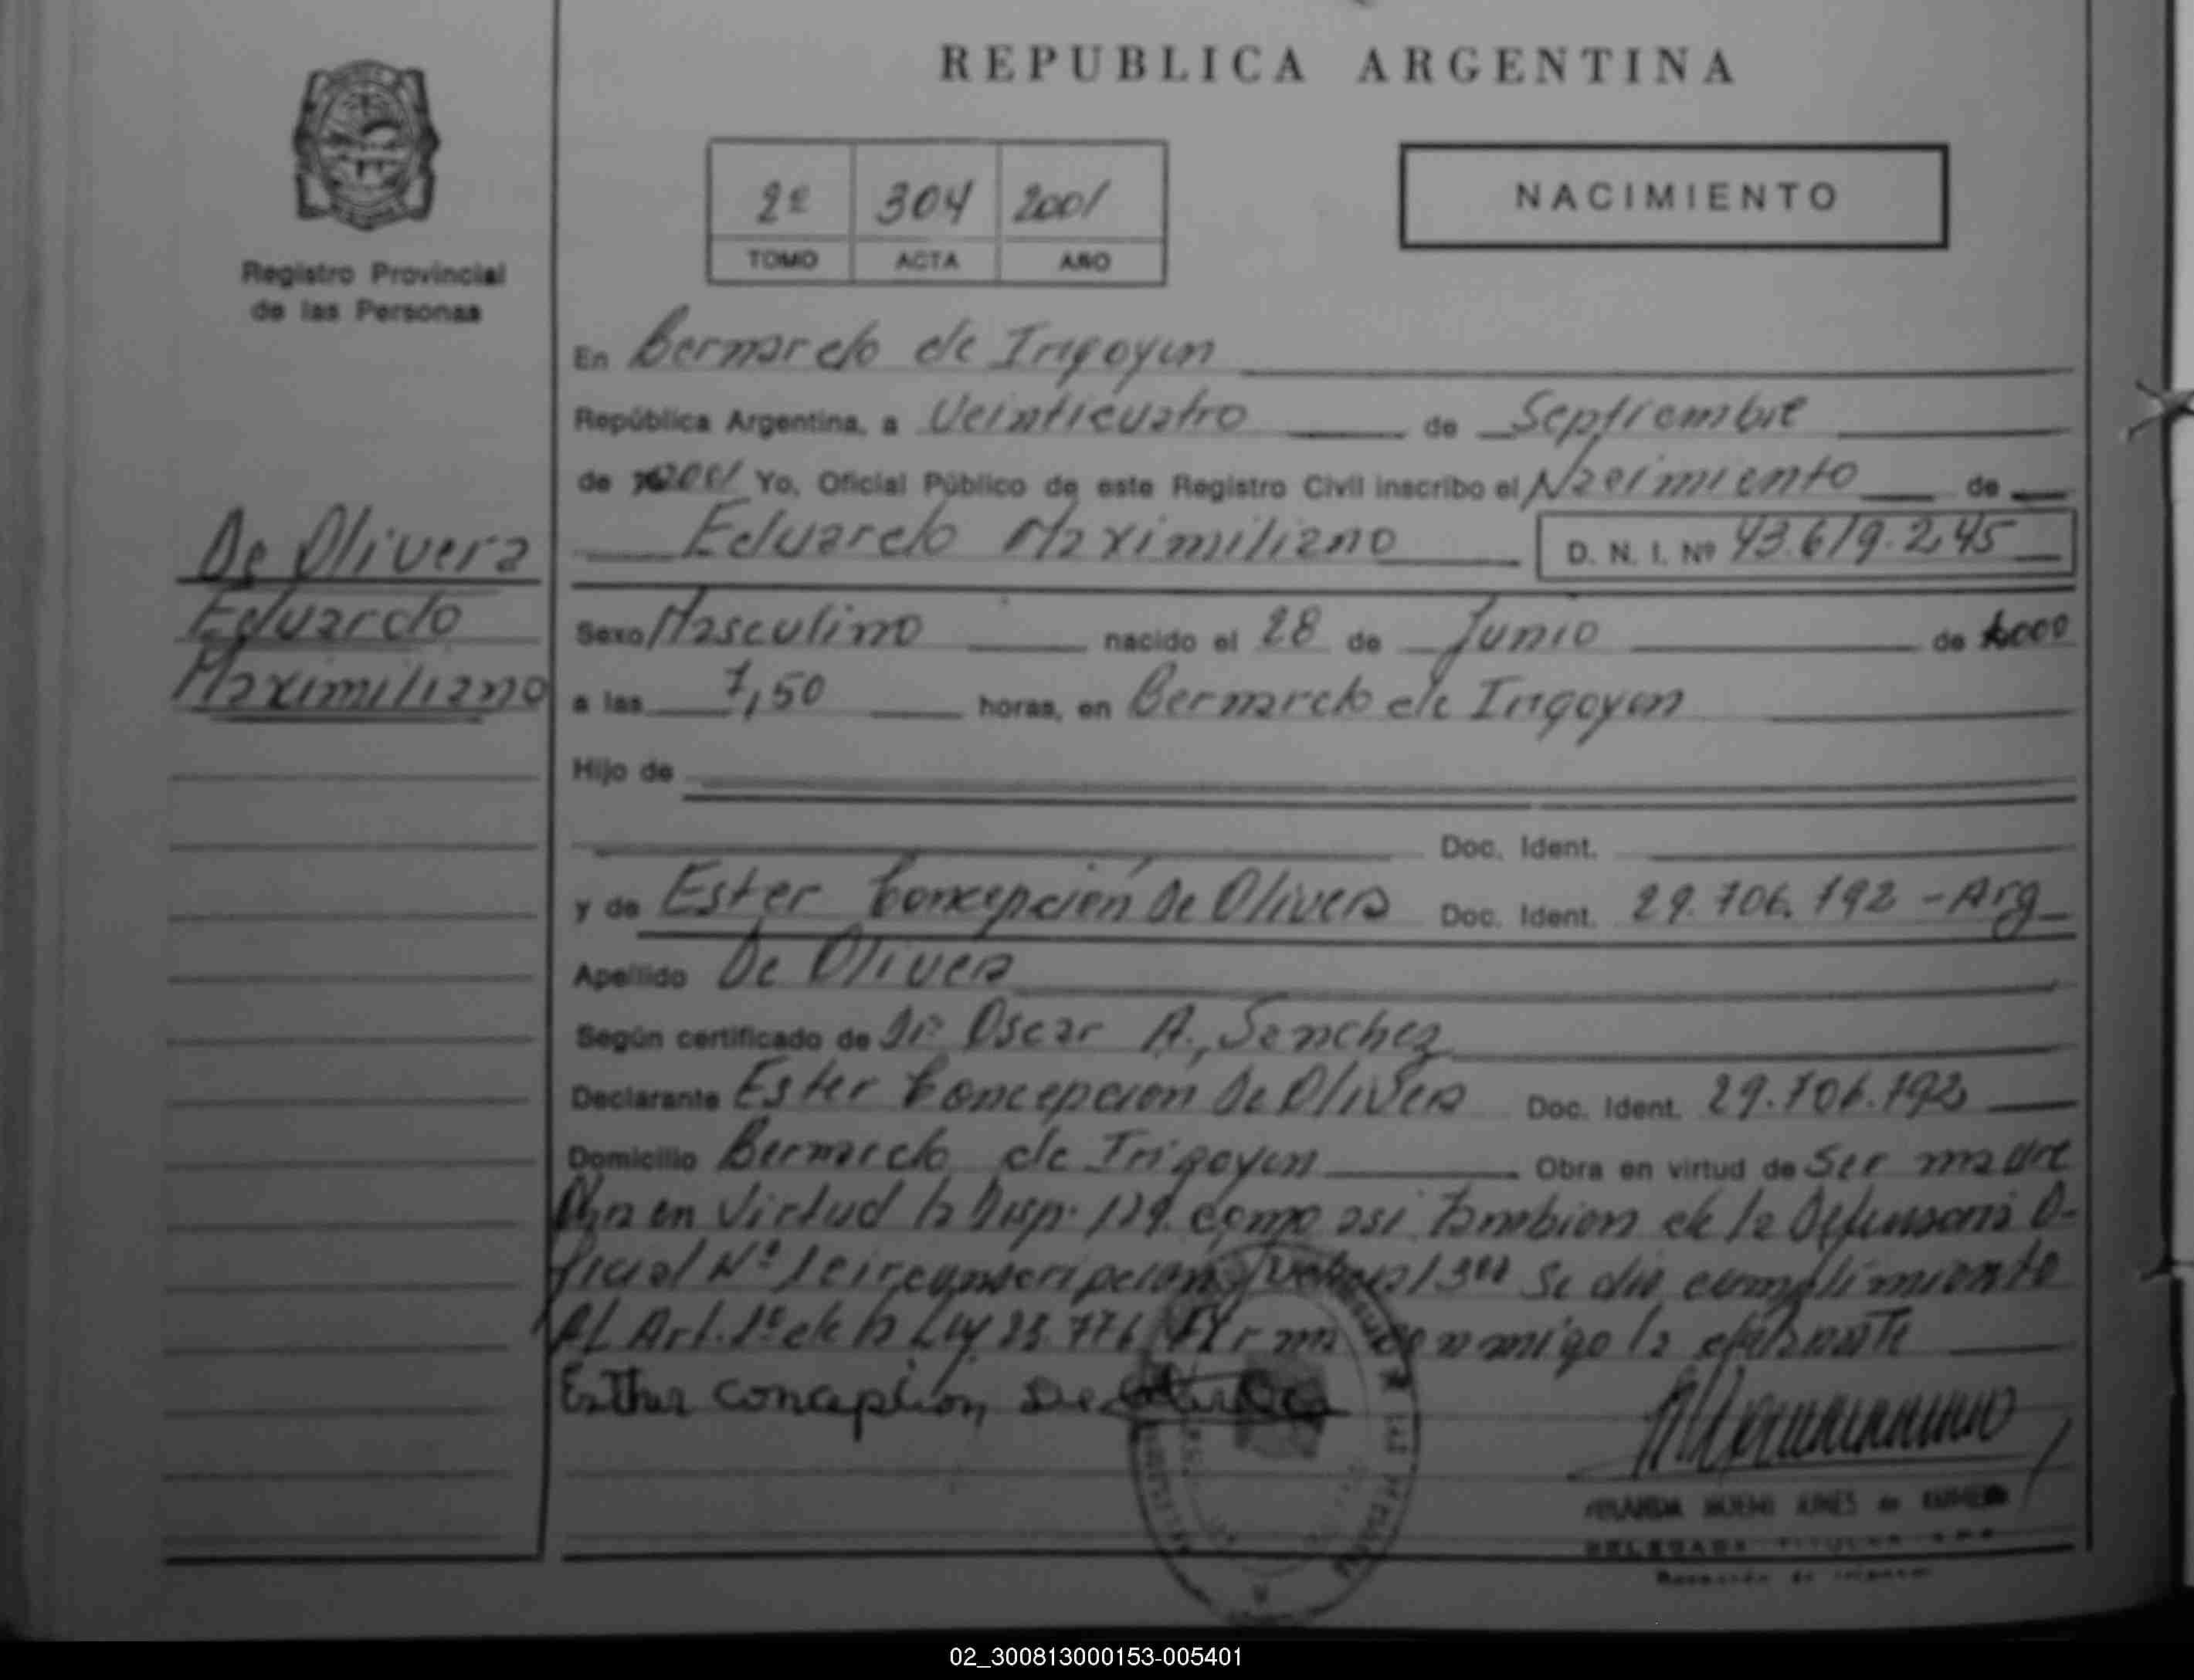 REPUBLICA ARGENTINA
2º 304 2001
TOMO ACTA AÑO
NACIMIENTO
Registro Provincial
de las Personas
En Bernardo de Irigoyen
República Argentina, a Veinticuatro de Septiembre
de 2001 Yo, Oficial Público de este Registro Civil inscribo el Nacimiento de
Eduardo Maximiliano D. N. I. Nº 43.619.245
De Olivera
Eduardo
Maximiliano
Sexo Masculino nacido el 28 de Junio de 2000
a las 7,50 horas, en Bernardo de Irigoyen
Hijo de
Doc. Ident.
y de Ester Concepción De Olivera Doc. Ident. 29.706.192 - Arg
Apellido De Olivera
Según certificado de Dr. Oscar A. Sanchez
Declarante Ester Concepcion De Olivera Doc. Ident. 29.706.192
Domicilio Bernardo de Irigoyen Obra en virtud de Ser madre
en Virtud la Disp. 129. como asi tambien de la Defensoria O-
ficial Nº 1 circunscripcion Judicial 3ra Se dio cumplimiento
Al Art. 1º de la Ley 23.776 Firma conmigo la
Esther Concepción De Olivera
DELEGADA TITULAR
02_300813000153-005401